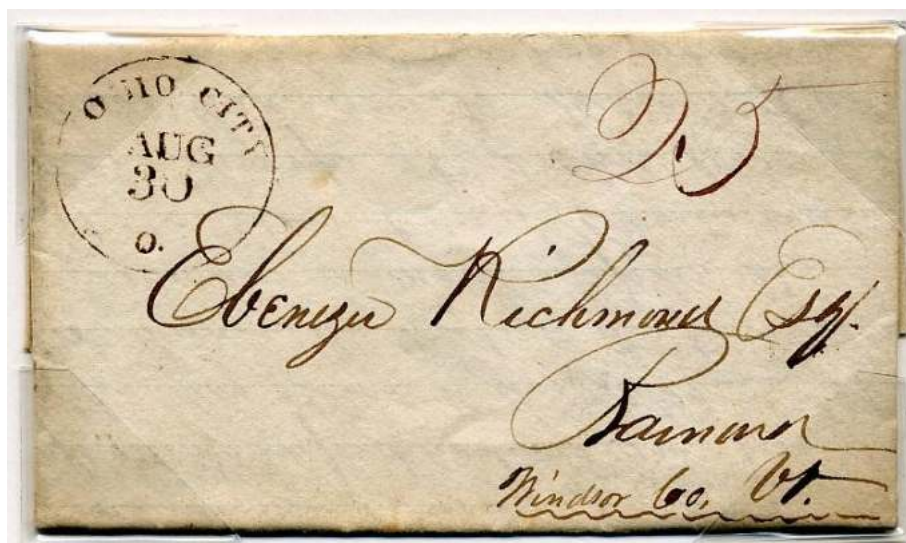 OHIO CITY
AUG
30
O.
25
Ebenezer Richmond Esq.
Barnard
Windsor Co, Vt.